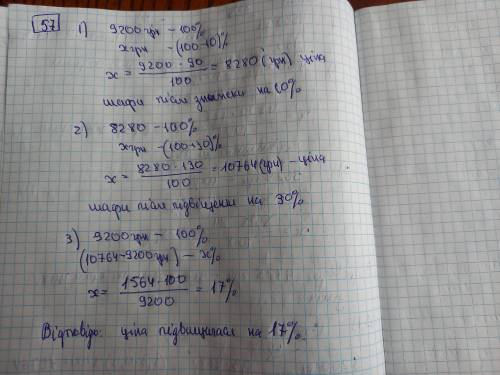 57 1) 9200 грн – 100%
x грн – (100-10)%
x = 9200 · 90 / 100 = 8280 (грн) ціна
шафи після знижки на 10%
2) 8280 – 100%
x грн – (100+30)%
x = 8280 · 130 / 100 = 10764 (грн) – ціна
шафи після підвищення на 30%
3) 9200 грн – 100%
(10764-9200 грн) – x%
x = 1564 · 100 / 9200 = 17%
Відповідь: ціна підвищилася на 17%.